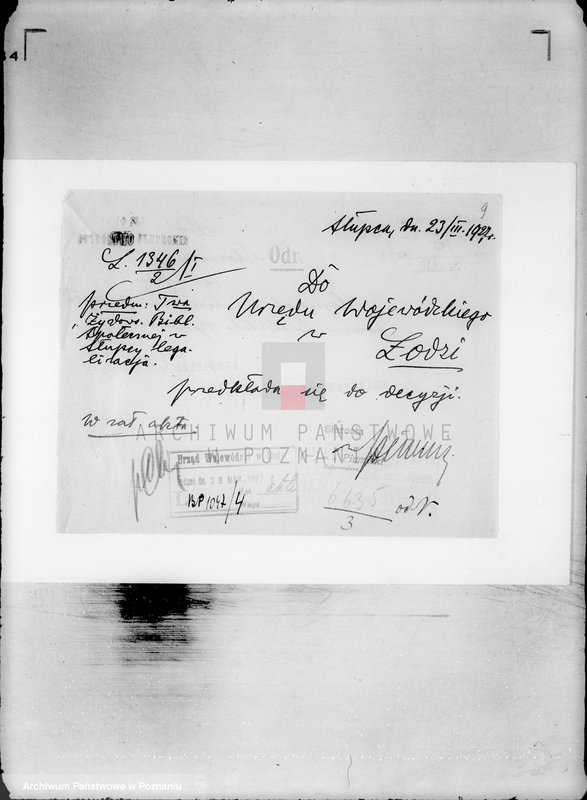 9
Słupca, dn. 23/III. 1927r.
STAROSTWO SŁUPECKIE
L. 1346/2/I
Odr.
Do
Urzędu Wojewódzkiego
w
Łodzi
przedm: T-wa
Żydows. Bibl.
Społecznej w
Słupcy lega-
lizacja.
przedkłada się do decyzji.
w zał. akta
ARCHIWUM PAŃSTWOWE
POZNAŃ
Starosta
Urząd Wojewódz
dn. 28 MAR 1927
akta
BP 1047/4
6635
3
od V.
Archiwum Państwowe w Poznaniu